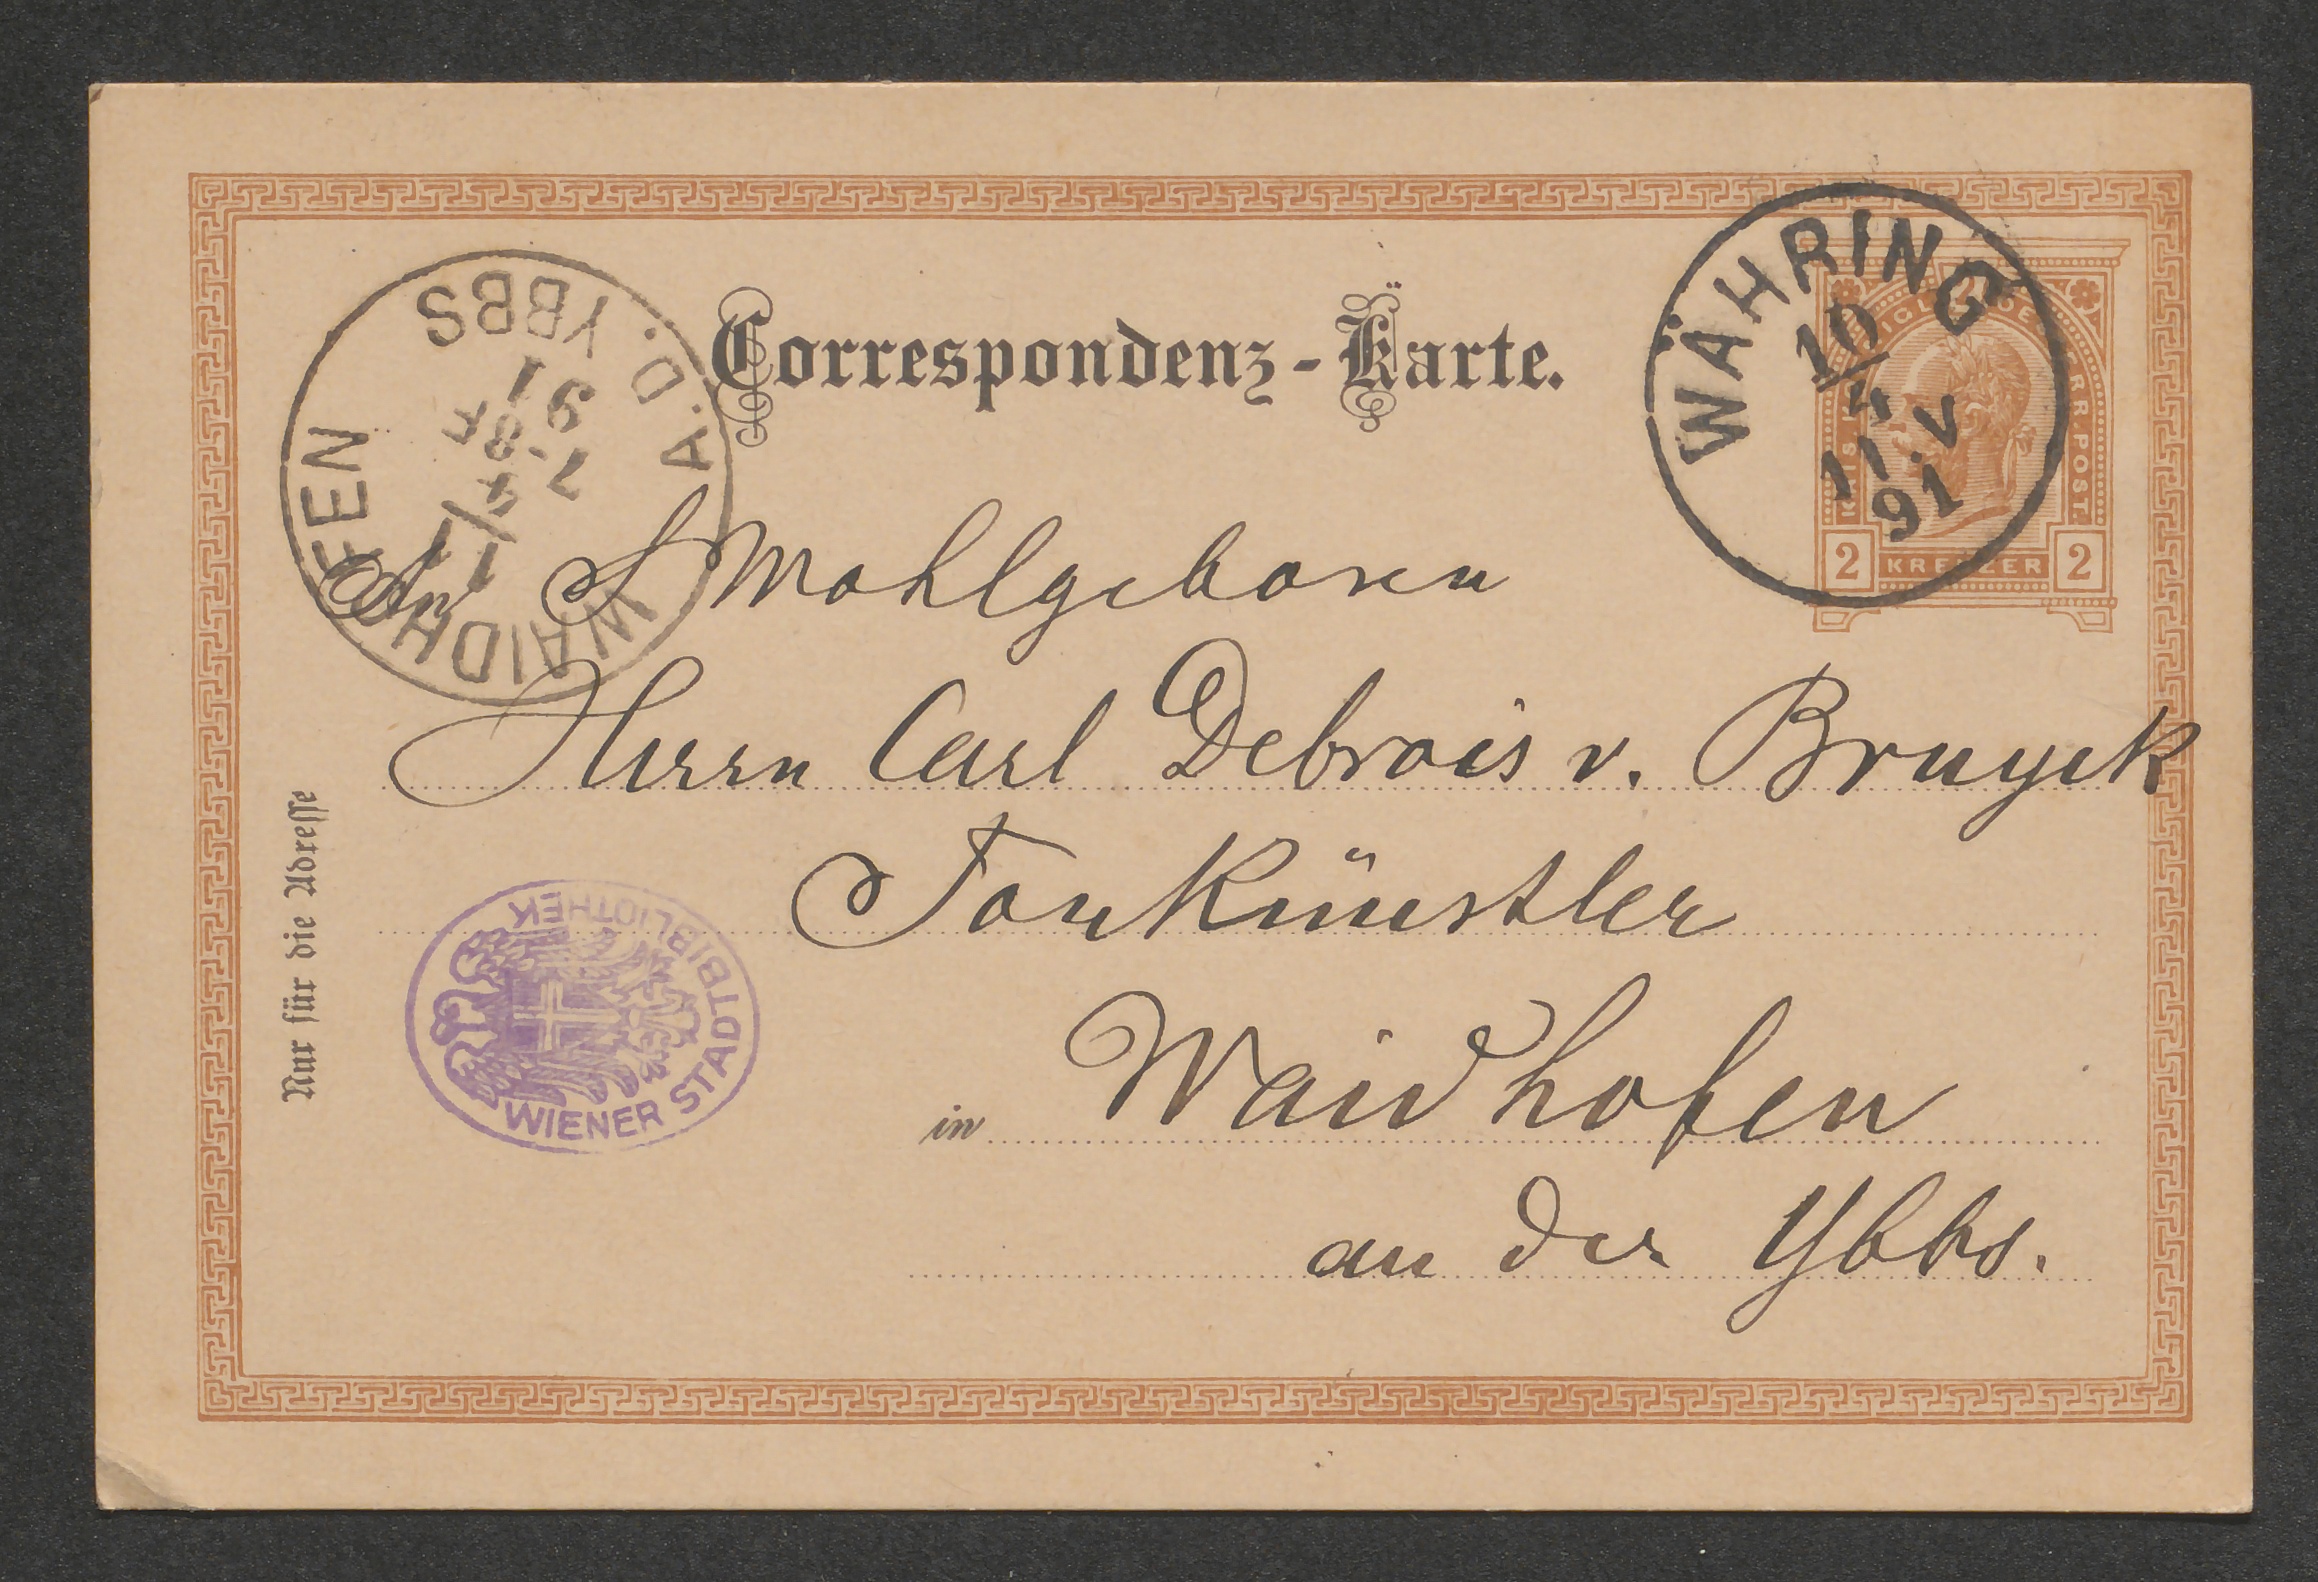 Correspondenz-Karte.
WÄHRING
10/4
11-V
91
KREUZER
2 2
WAIDHOFEN A.D. YBBS
11/4
7.8.F
91
An S Wohlgeboren
Herrn Carl Debrois v. Bruyck
Tonkünstler
in Waidhofen
an der Ybbs.
Nur für die Adresse
WIENER STADTBIBLIOTHEK